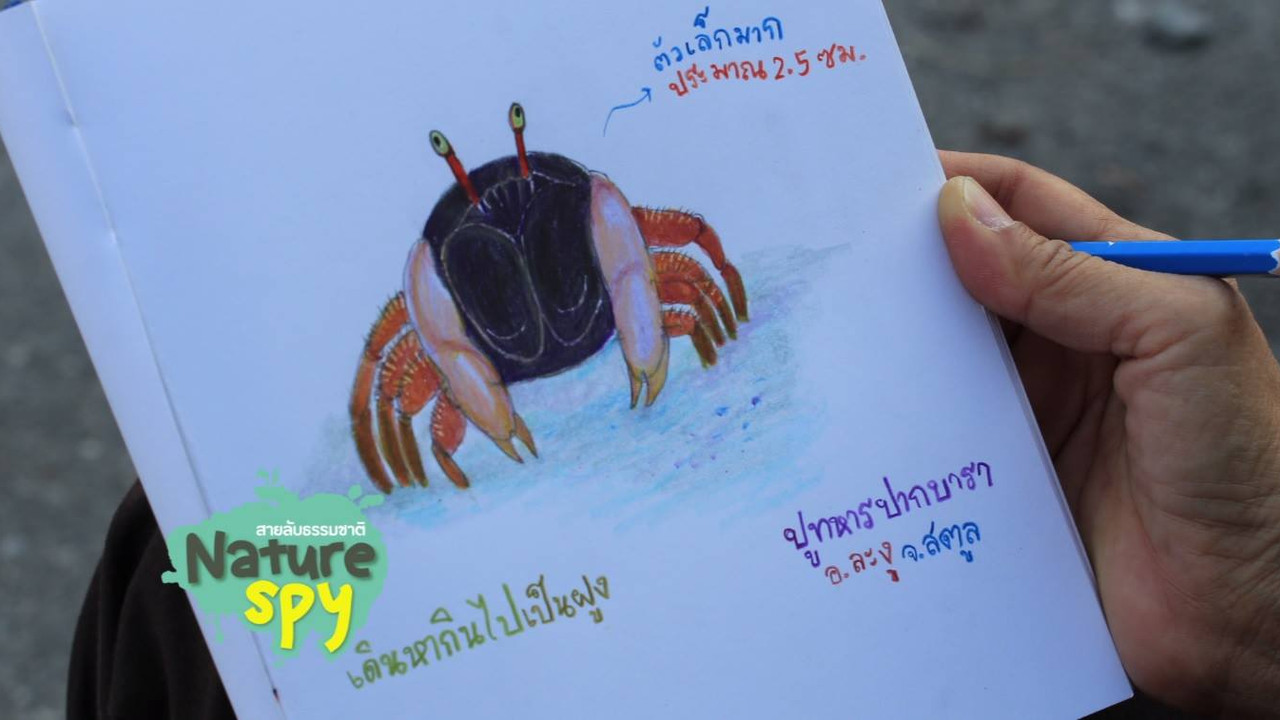 ตัวเล็กมาก
ประมาณ 2.5 ซม.
ปูทหารปากบารา
อ.ละงู จ.สตูล
เดินหากินไปเป็นฝูง
สายลับธรรมชาติ
Nature
spy